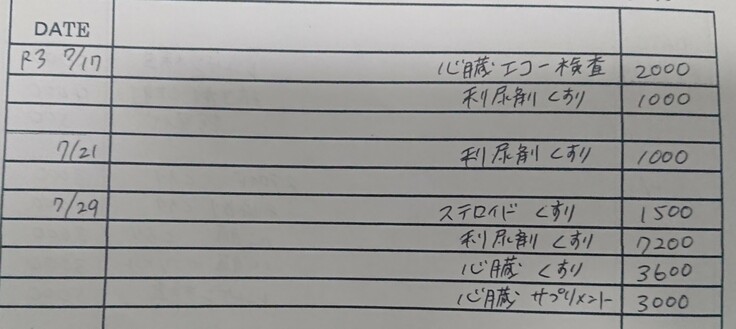 DATE
R3 7/17 心臓エコー検査 2000
利尿剤 くすり 1000
7/21 利尿剤 くすり 1000
7/29 ステロイド くすり 1500
利尿剤 くすり 7200
心臓 くすり 3600
心臓 サプリメント 3000